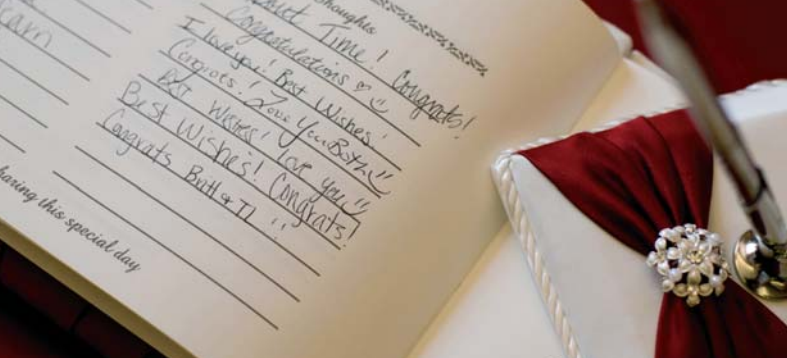 earn
houghts
Time! Congrats!
Congratulations
I love you! Best Wishes!
Congrats! Love You Both
Best Wishes! Love you
Best Wishes! Congrats!
Congrats Britt & TJ
haring this special day